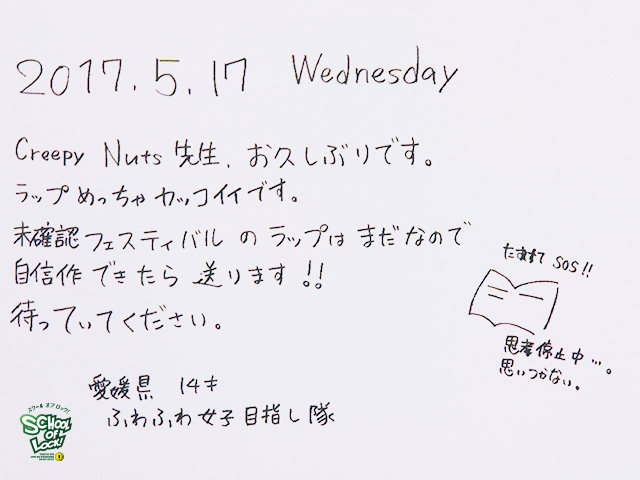 2017.5.17 Wednesday
Creepy Nuts 先生、お久しぶりです。
ラップめっちゃカッコイイです。
未確認フェスティバルのラップはまだなので
自信作できたら送ります!!
待っていてください。
たすけて SOS!!
思考停止中…。
思いつかない。
愛媛県 14才
ふわふわ女子目指し隊
スクール オブ ロック!
SCHOOL
OF
LOCK!